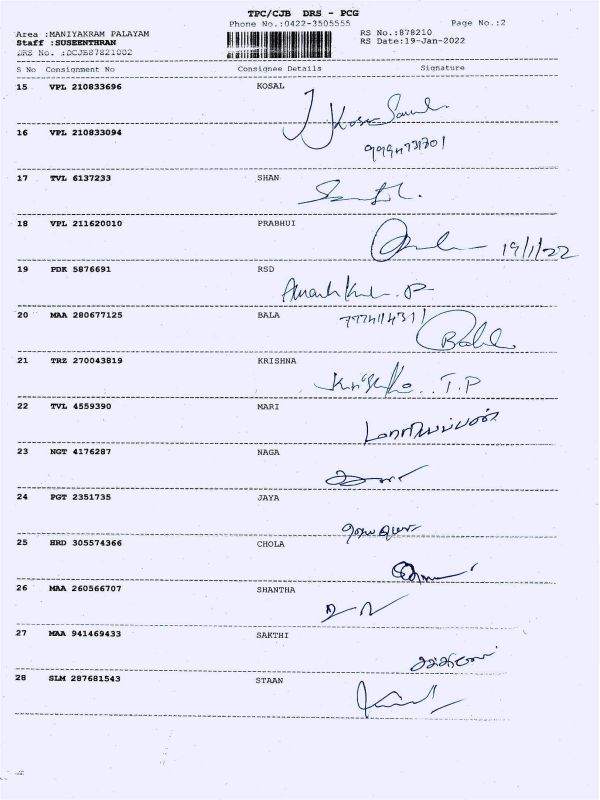 TPC/CJB DRS - PCG
Phone No.:0422-3505555 Page No.:2
Area :MANIYAKRAM PALAYAM RS No.:878210
Staff :SUSEENTHRAN RS Date:19-Jan-2022
DRS No. :DCJB87821002
S No Consignment No Consignee Details Signature
15 VPL 210833696 KOSAL
16 VPL 210833094
17 TVL 6137233 SHAN
18 VPL 211620010 PRABHUI
19/1/22
19 PDK 5876691 RSD
20 MAA 280677125 BALA
Bala
21 TRZ 270043819 KRISHNA
T.P
22 TVL 4559390 MARI
மாரியப்பன்
23 NGT 4176287 NAGA
24 PGT 2351735 JAYA
25 HRD 305574366 CHOLA
26 MAA 260566707 SHANTHA
27 MAA 941469433 SAKTHI
28 SLM 287681543 STAAN